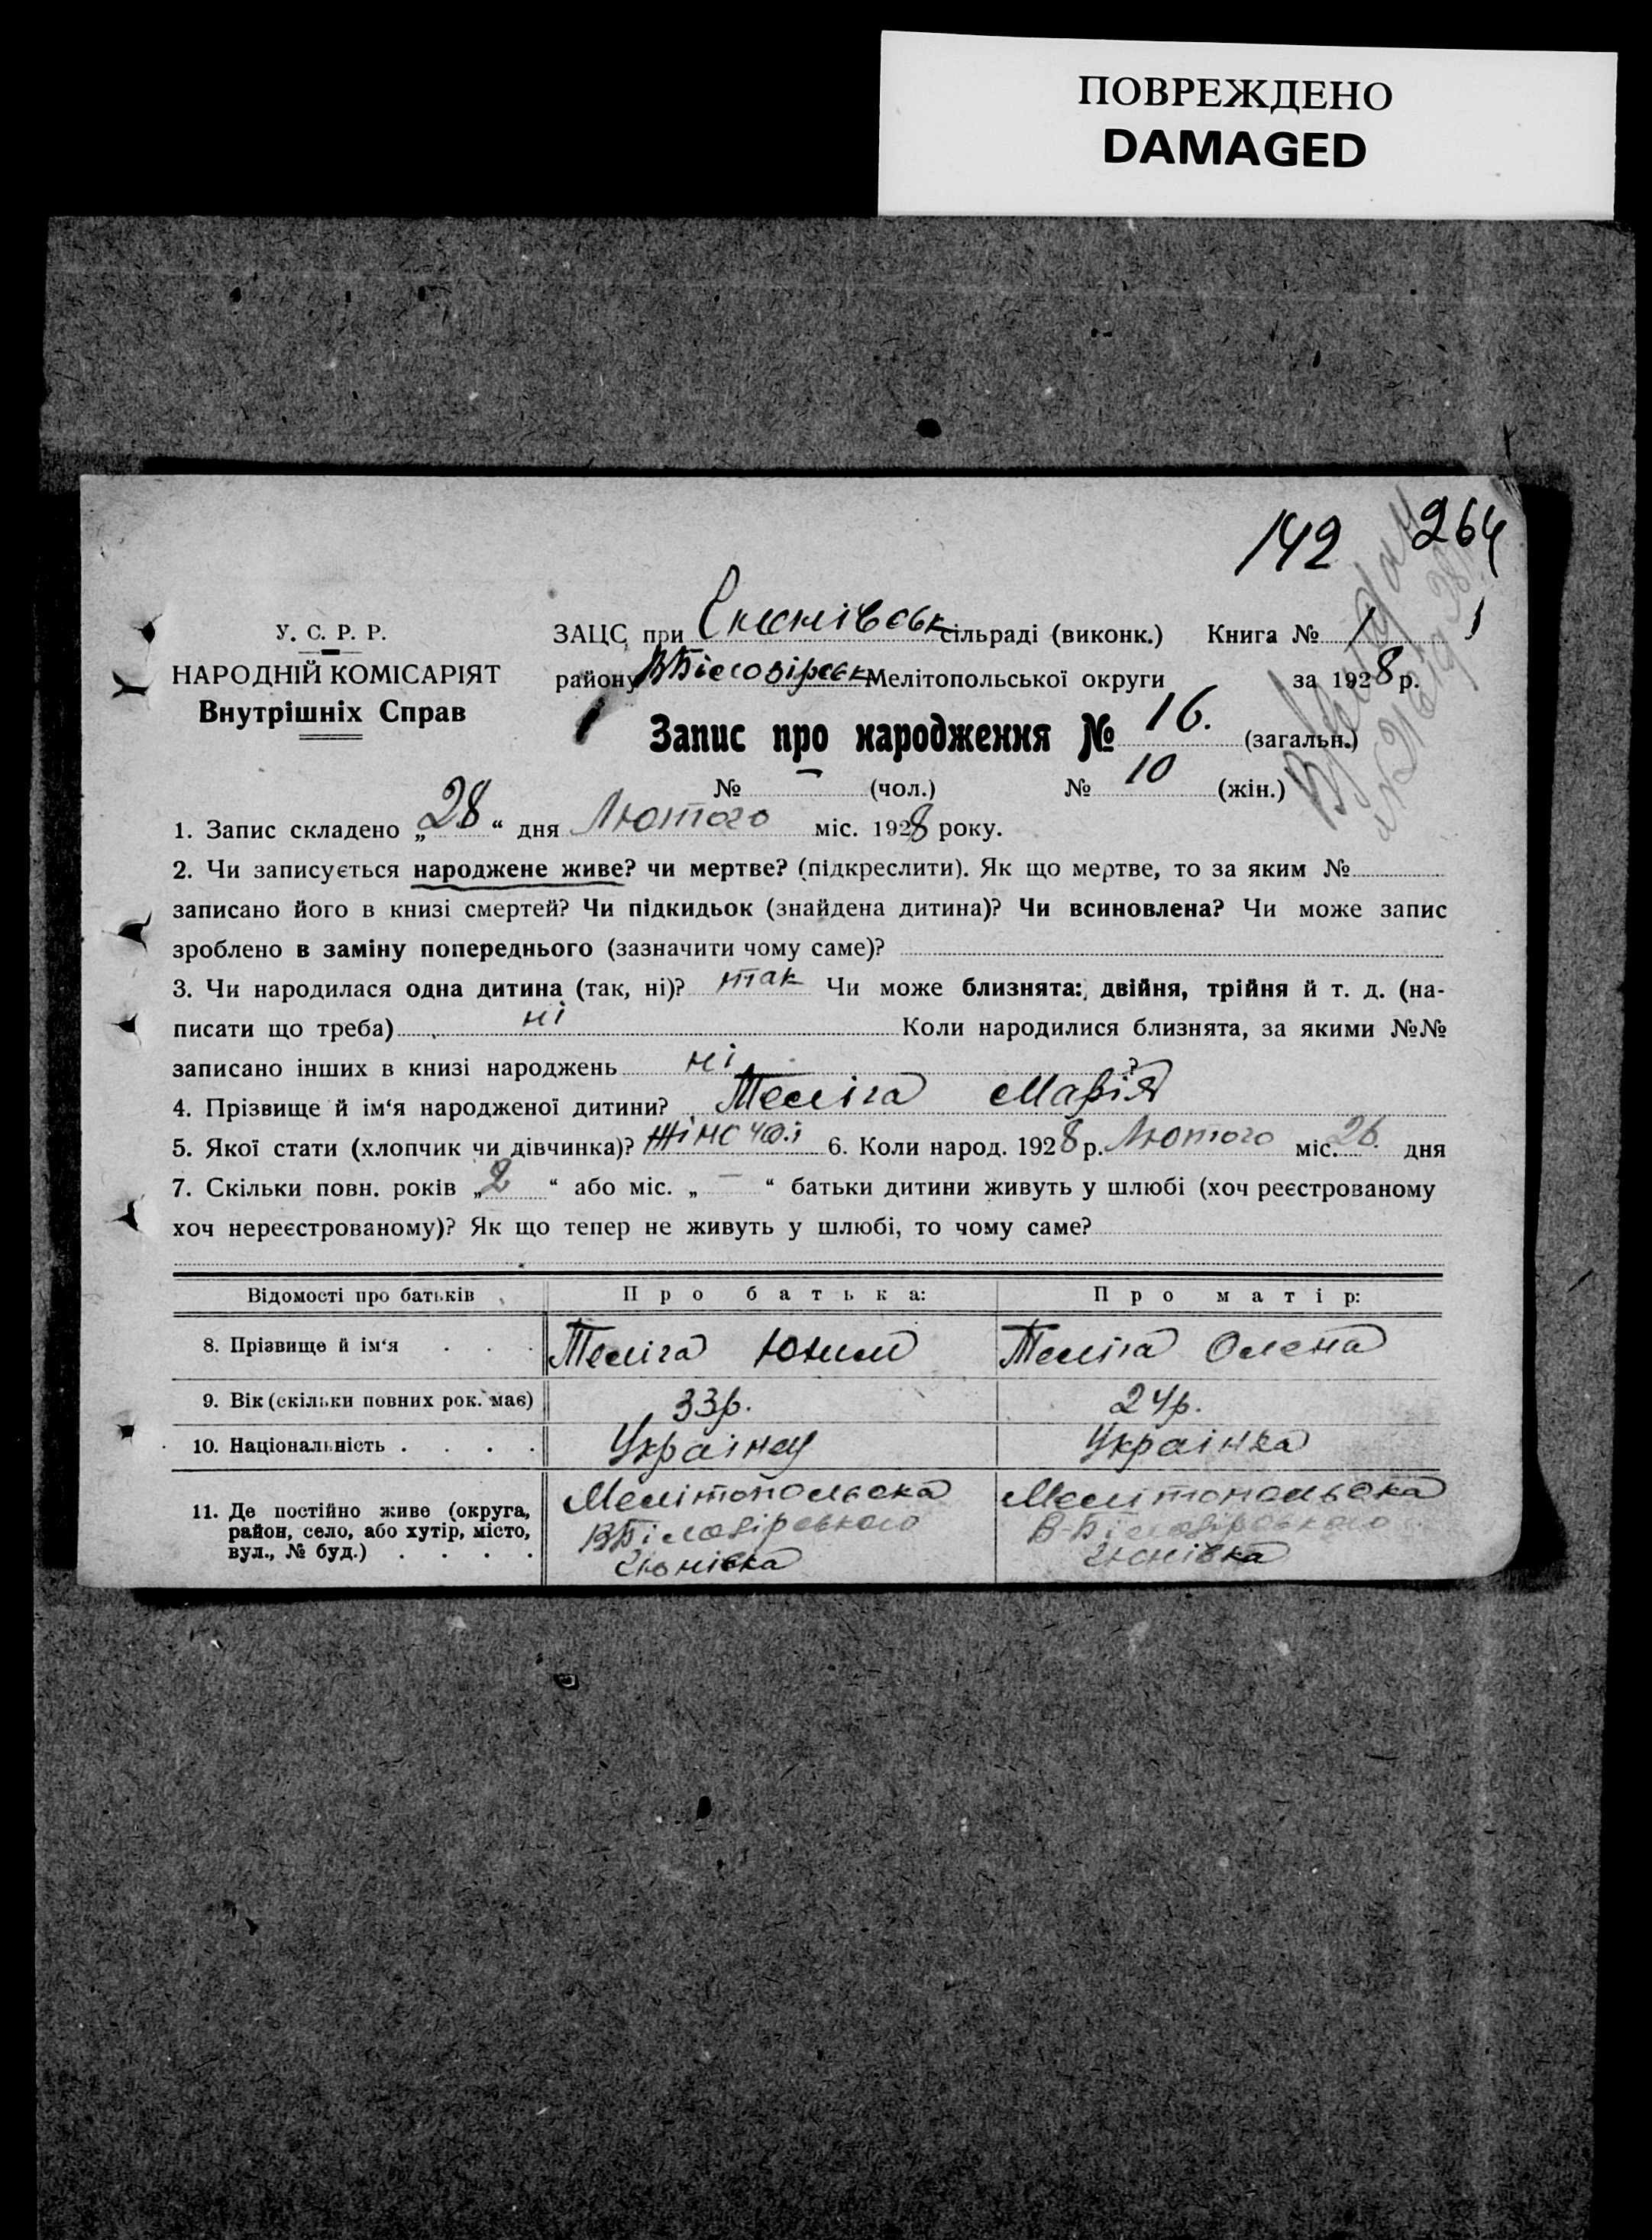 ПОВРЕЖДЕНО
DAMAGED
142 264
У. С. Р. Р.
НАРОДНІЙ КОМІСАРІЯТ
Внутрішніх Справ
ЗАЦС при сільраді (виконк.) Книга № 1
району ВБілозірськ Мелітопольської округи за 1928 р.
Запис про народження № 16. (загальн.)
№ — (чол.) № 10 (жін.)
1. Запис складено „28“ дня Лютого міс. 1928 року.
2. Чи записується народжене живе? чи мертве? (підкреслити). Як що мертве, то за яким №
записано його в книзі смертей? Чи підкидьок (знайдена дитина)? Чи всиновлена? Чи може запис
зроблено в заміну попереднього (зазначити чому саме)?
3. Чи народилася одна дитина (так, ні)? так Чи може близнята: двійня, трійня й т. д. (на-
писати що треба) ні Коли народилися близнята, за якими №№
записано інших в книзі народжень ні ?
4. Прізвище й ім‘я народженої дитини? Теліга Марія
5. Якої стати (хлопчик чи дівчинка)? жіночої 6. Коли народ. 1928 р. Лютого міс. 26 дня
7. Скільки повн. років „2“ або міс. „—“ батьки дитини живуть у шлюбі (хоч реєстрованому
хоч нереєстрованому)? Як що тепер не живуть у шлюбі, то чому саме?
Відомості про батьків Про батька: Про матір:
8. Прізвище й ім‘я . . . Теліга Юхим Теліга Олена
9. Вік (скільки повних рок. має) 33р. 24р.
10. Національність . . . . Українец Українка
11. Де постійно живе (округа, Мелітопольська Мелітопольська
район, село, або хутір, місто, ВБілозірського В-Білозірського
вул., № буд.) . . . .